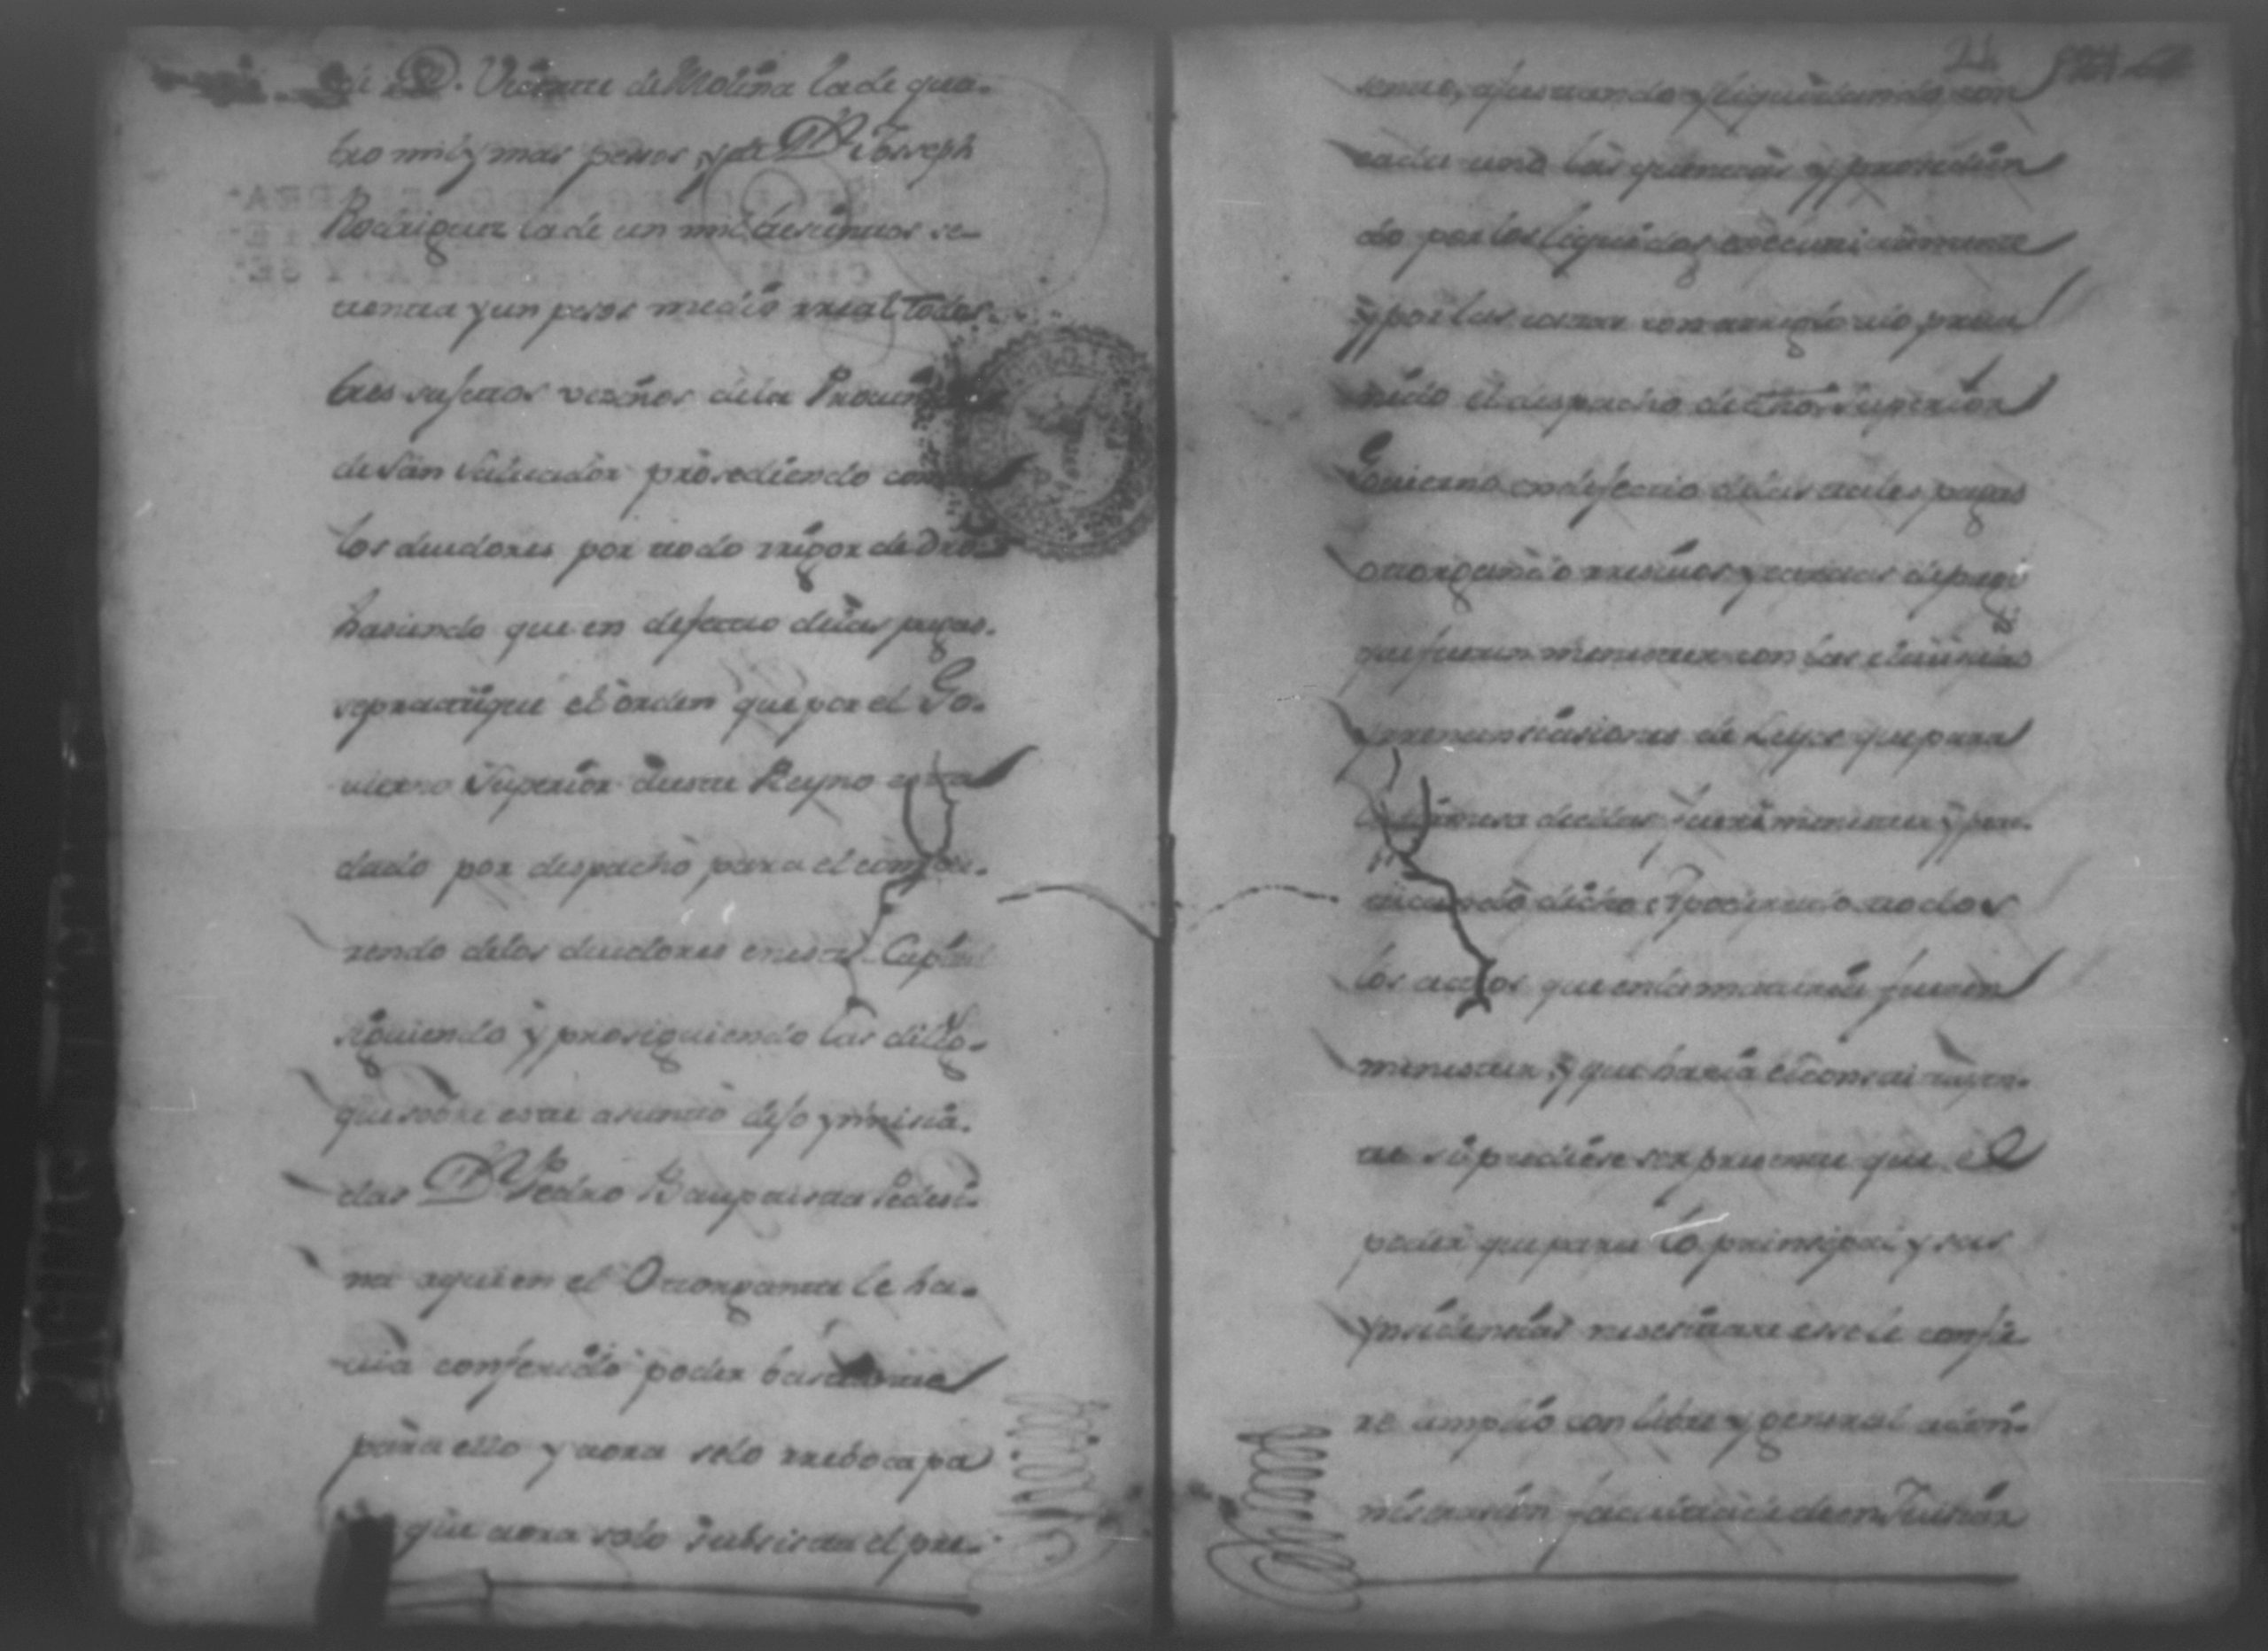 de D. Vicente de Molina la de qua-
tro mil y mas pesos, y de Dn Joseph
Rodriguez la de un mil doscientos se-
tenta y un pesos medio rreal todos
tres sujetos vezinos dela Provincia
de San Salvador prosediendo contra
los deudores por todo rrigor de dro
hasiendo que en defecto delas pagas
sepractique el orden que por el Go-
vierno Superior deeste Reyno esta
dado por despacho para el compa-
rendo delos deudores enesta Capital
siguiendo y prosiguiendo las dilig-
que sobre este asumto dejo ynisia-
das Dn Pedro Baupatista
na aquien el Otorgante le ha-
via conferido poder bastante
para ello y aora solo rrevoca pa
que aora solo subsista el pre-
21
sente, ajustando y liquidando con
cada uno las quentas y prosedien
do por los liquidos executivamente
y por las costas con arreglo alo preve
nido el despacho de dho Superior
Govierno en defecto delas tales pagas
otorgando rresivos y cartas de pago
que fueren menester con las clausulas
y rrenunsiasiones de Leyes que para
la firmesa deellas fuere menester y prac-
ticando dicho Apoderado todos
los actos que enla materia fueren
menester, y que haria el constituyen-
te si pudiese ser presente que el
poder que para lo prinsipal y sus
ynsidensias nesesitare ese le confie
re amplio con libre y general admi-
nistrasion facultad de enJuisiar